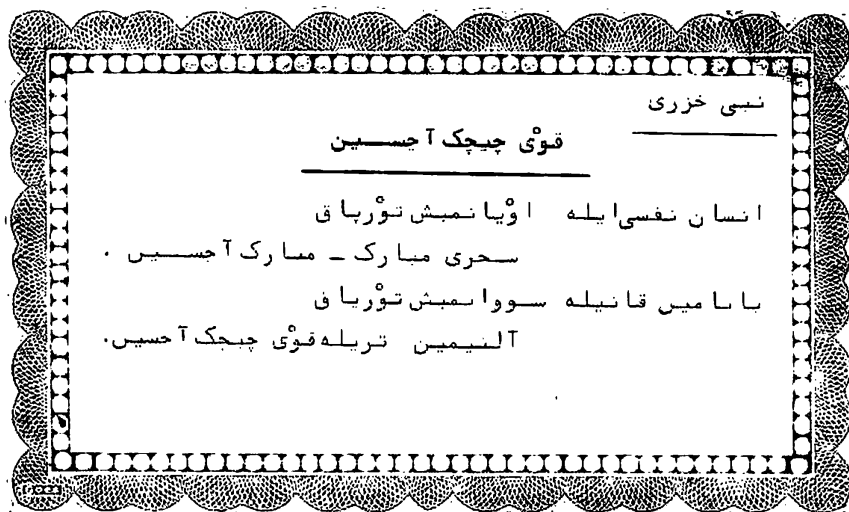 نبی خزری
قوْی چیچک آچسین
انسان نفسی ایله اوْیانمیش توْرپاق
سحری مبارک - مبارک آچسین .
بابامین قانیله سووانمیش توْرپاق
آلنیمین تریله قوْی چیچک آچسین.